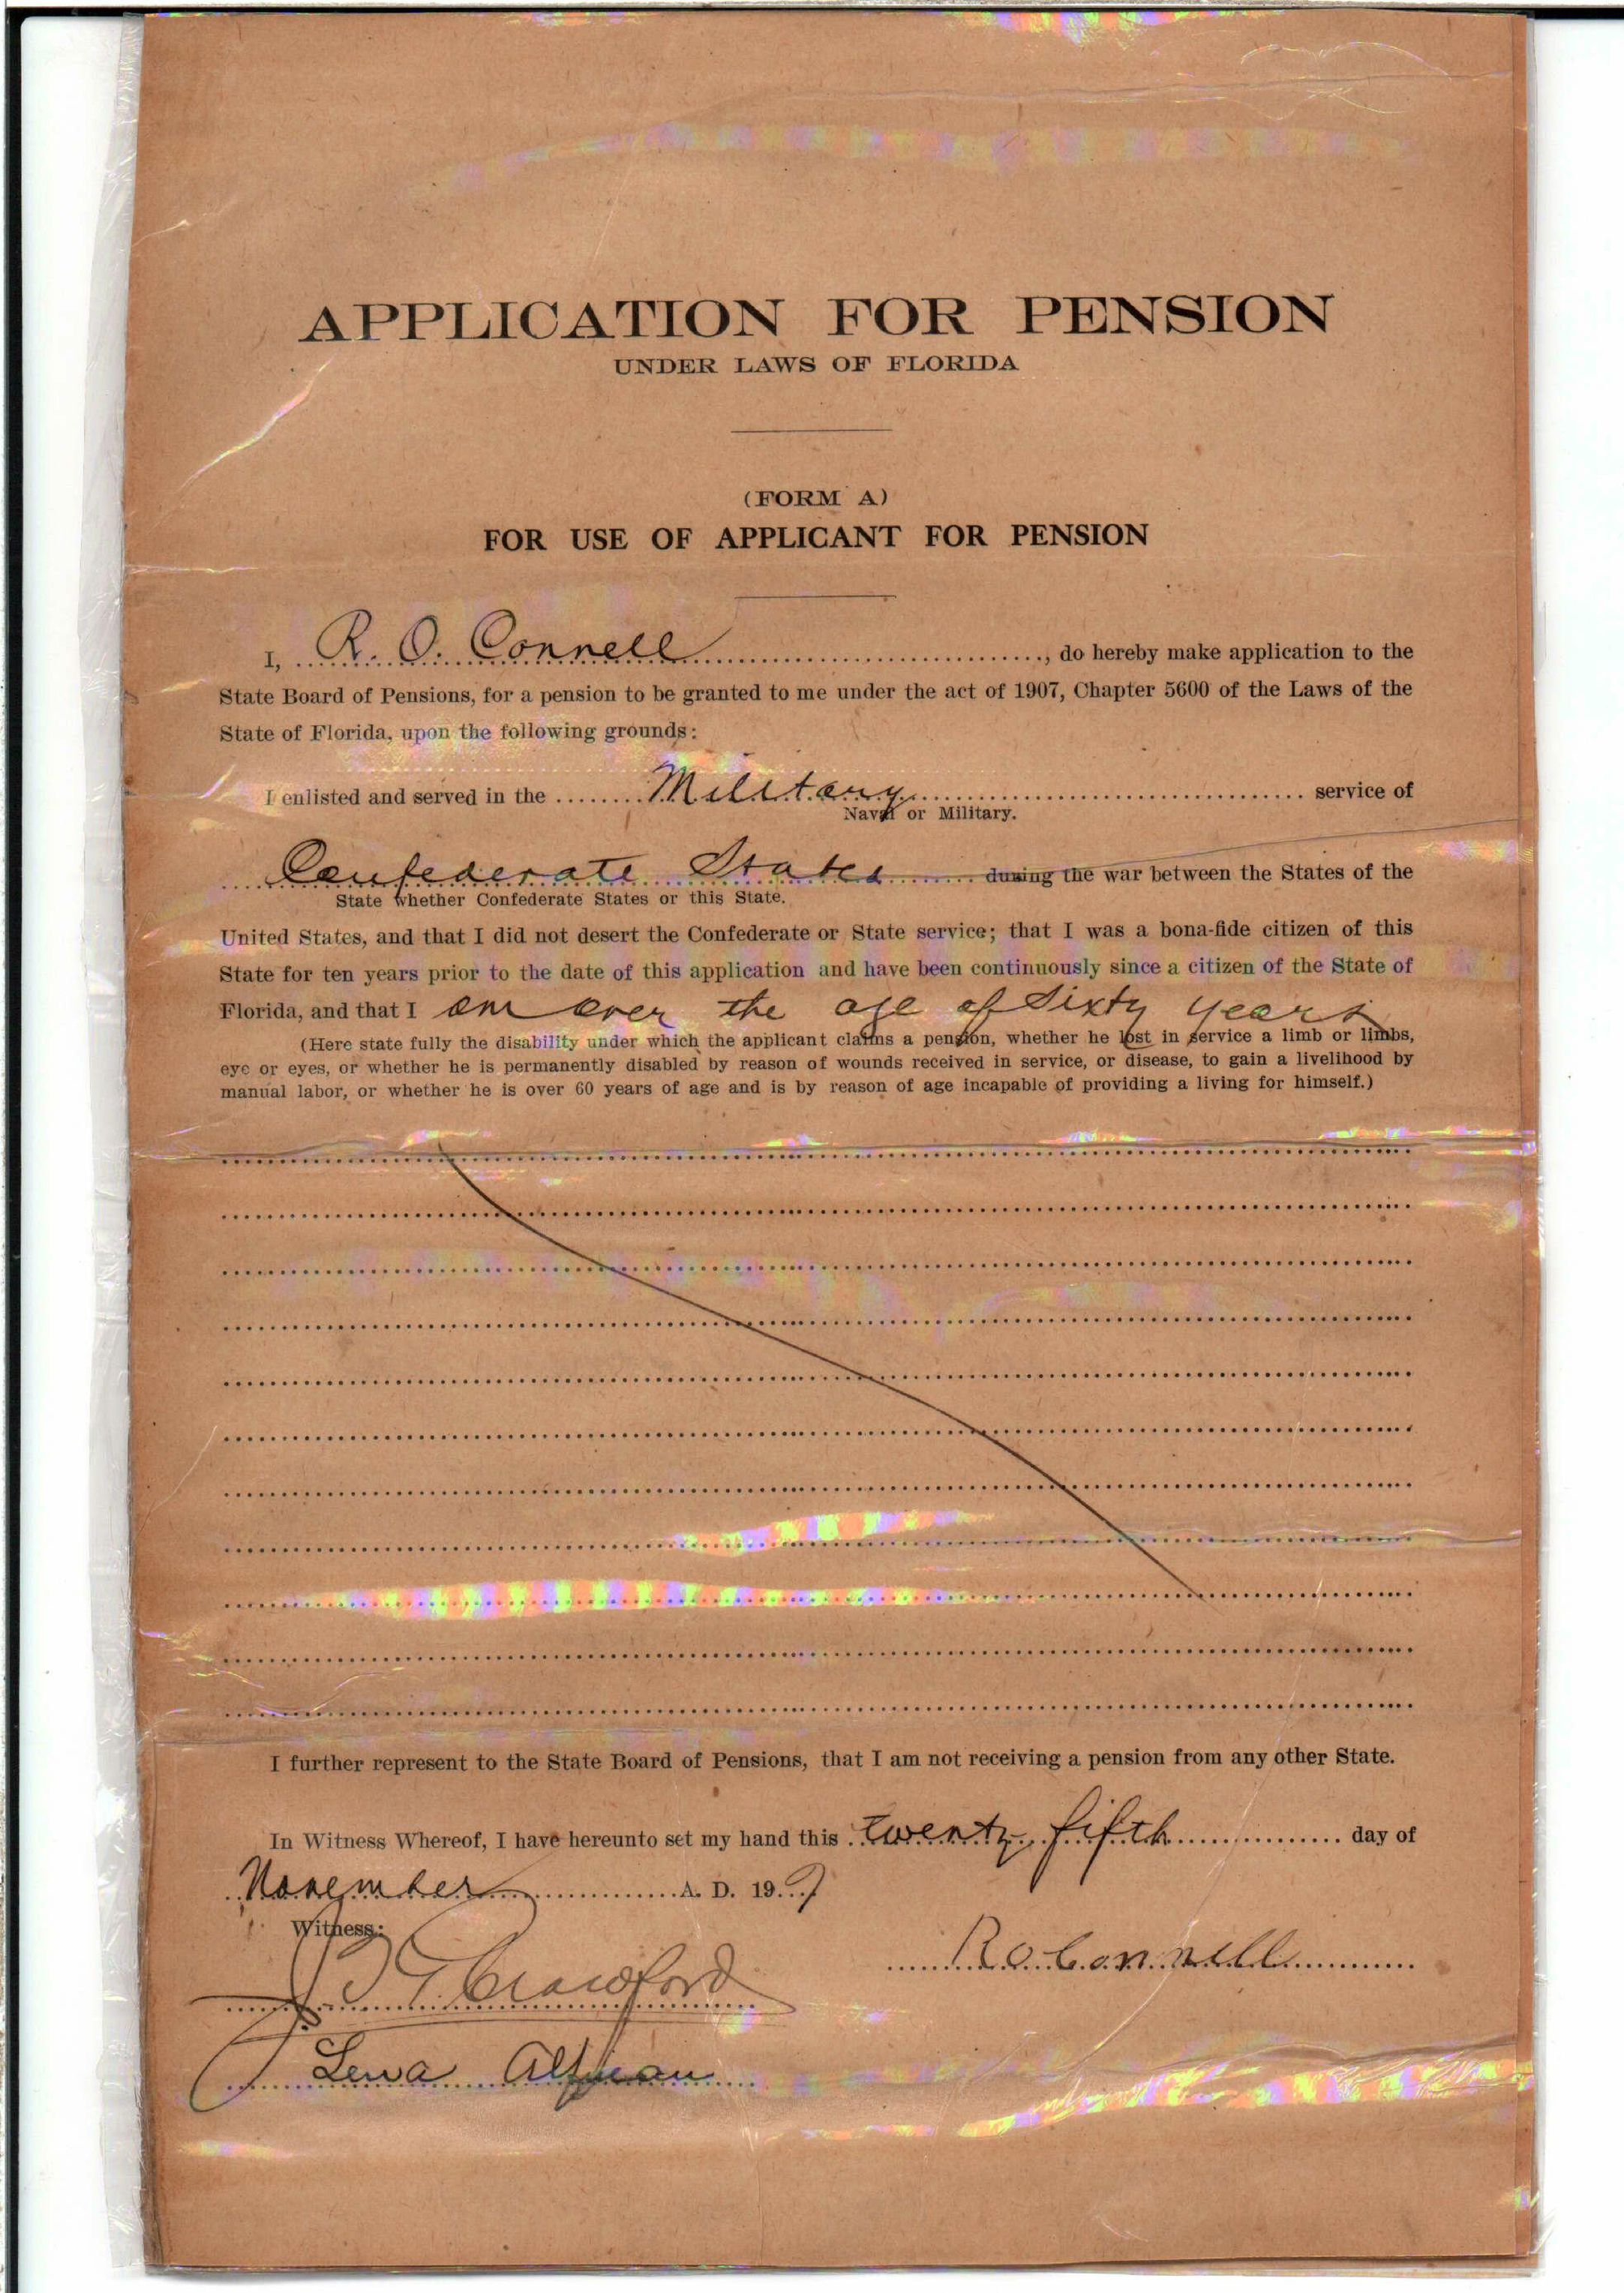 APPLICATION FOR PENSION
UNDER LAWS OF FLORIDA
(FORM A)
FOR USE OF APPLICANT FOR PENSION
I, R. O. Connell, do hereby make application to the
State Board of Pensions, for a pension to be granted to me under the act of 1907, Chapter 5600 of the Laws of the
State of Florida, upon the following grounds:
I enlisted and served in the Military service of
Naval or Military.
Confederate States during the war between the States of the
State whether Confederate States or this State.
United States, and that I did not desert the Confederate or State service; that I was a bona-fide citizen of this
State for ten years prior to the date of this application and have been continuously since a citizen of the State of
Florida, and that I am over the age of Sixty years
(Here state fully the disability under which the applicant claims a pension, whether he lost in service a limb or limbs,
eye or eyes, or whether he is permanently disabled by reason of wounds received in service, or disease, to gain a livelihood by
manual labor, or whether he is over 60 years of age and is by reason of age incapable of providing a living for himself.)
I further represent to the State Board of Pensions, that I am not receiving a pension from any other State.
In Witness Whereof, I have hereunto set my hand this twenty fifth day of
November A. D. 19
Witness:
R O Connell
Crawford
Lewa